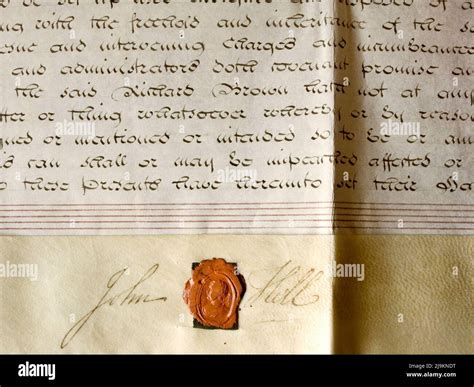 with the freehold and inheritance of the
esne and intervening Charges and incumbrance
and administrators doth covenant promise a
the said Richard Brown hath not at any
or thing whatsoever whereby or by reason
or mentioned or intended so to be or
can shall or may be impeached affected or
these Presents have hereunto set their
John Hill
alamy
Image ID: 2J9KNDT
www.alamy.com